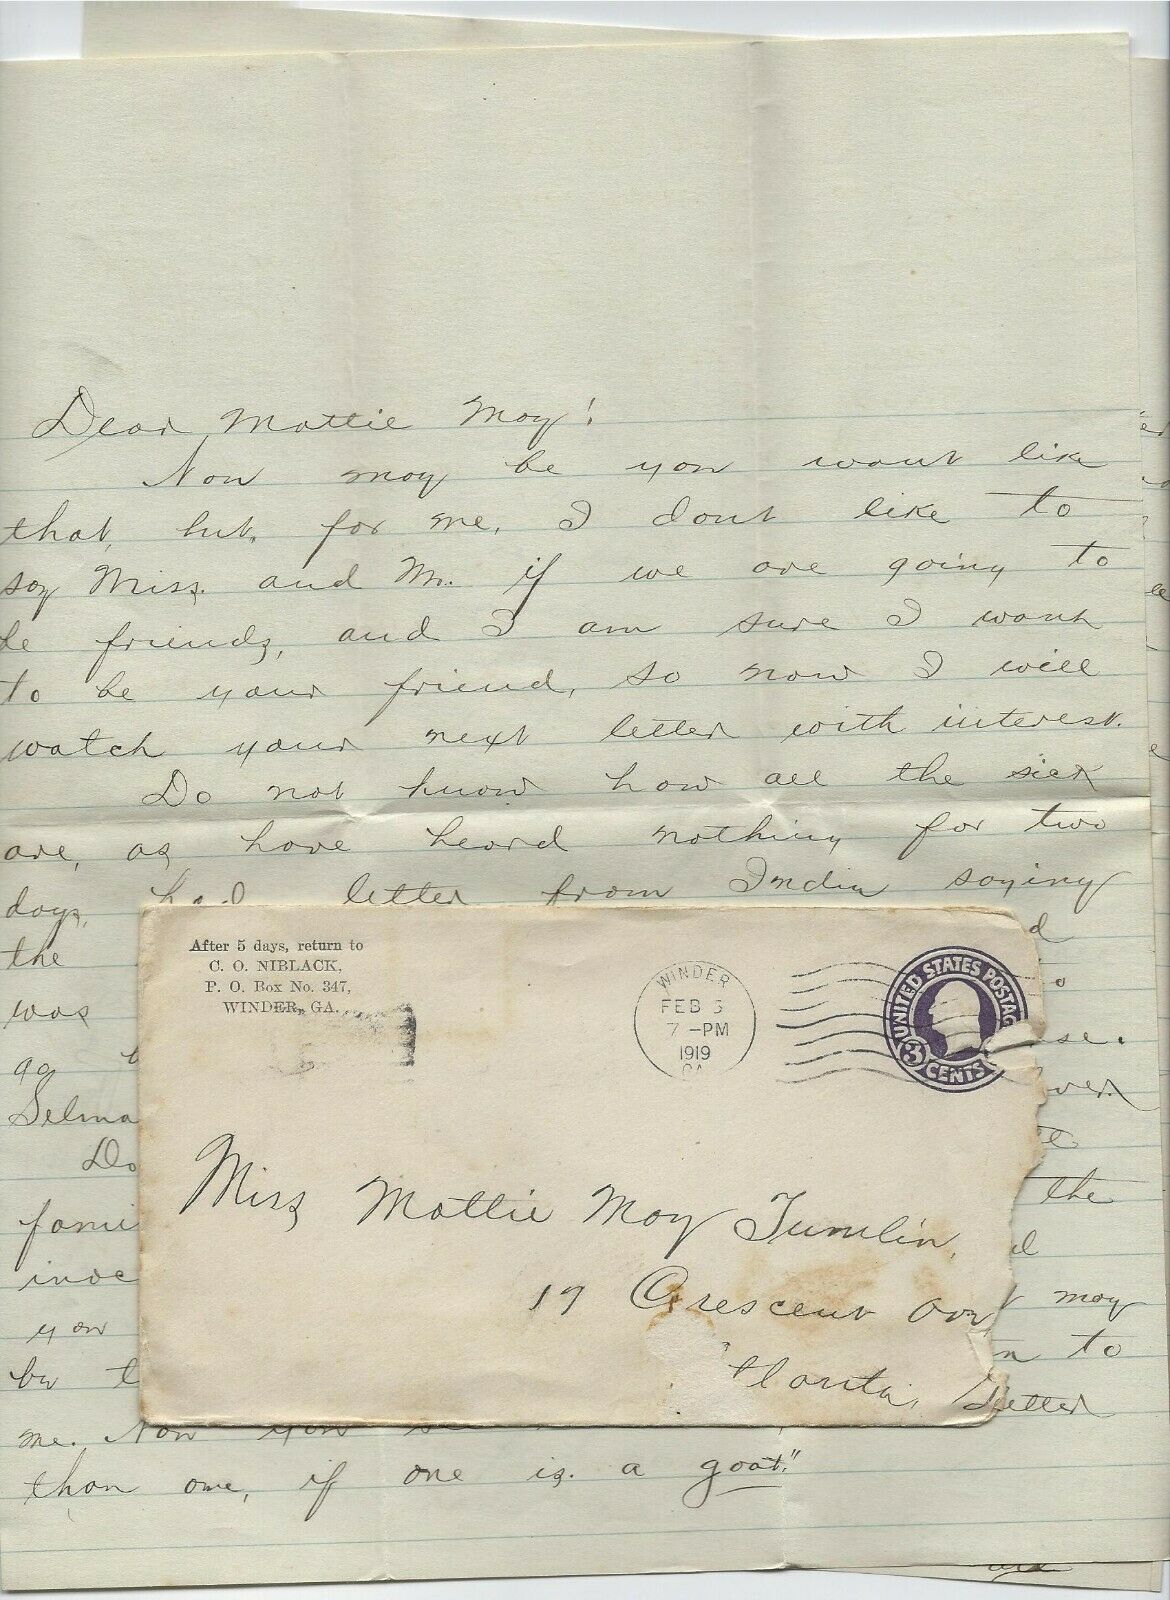 Dear Mattie May!
Now may be you wont like
that, but, for me, I dont like to
say Miss. and Mr. if we are going to
be friends, and I am sure I want
to be your friend, so now I will
watch your next letter with interest.
Do not know how all the sick
are, as have heard nothing for two
days, had letter from India saying
the
was
go
Selma
Do
fami
inde
you
by t
me. Now you
than one, if one is a goat."
d
o
se.
over
te
the
d
may
n to
better
After 5 days, return to
C. O. NIBLACK,
P. O. Box No. 347,
WINDER, GA.
WINDER
FEB 3
7-PM
1919
GA
UNITED STATES POSTAG
3 CENTS
Miss Mattie May Tumlin,
17 Crescent Ave
tlanta,